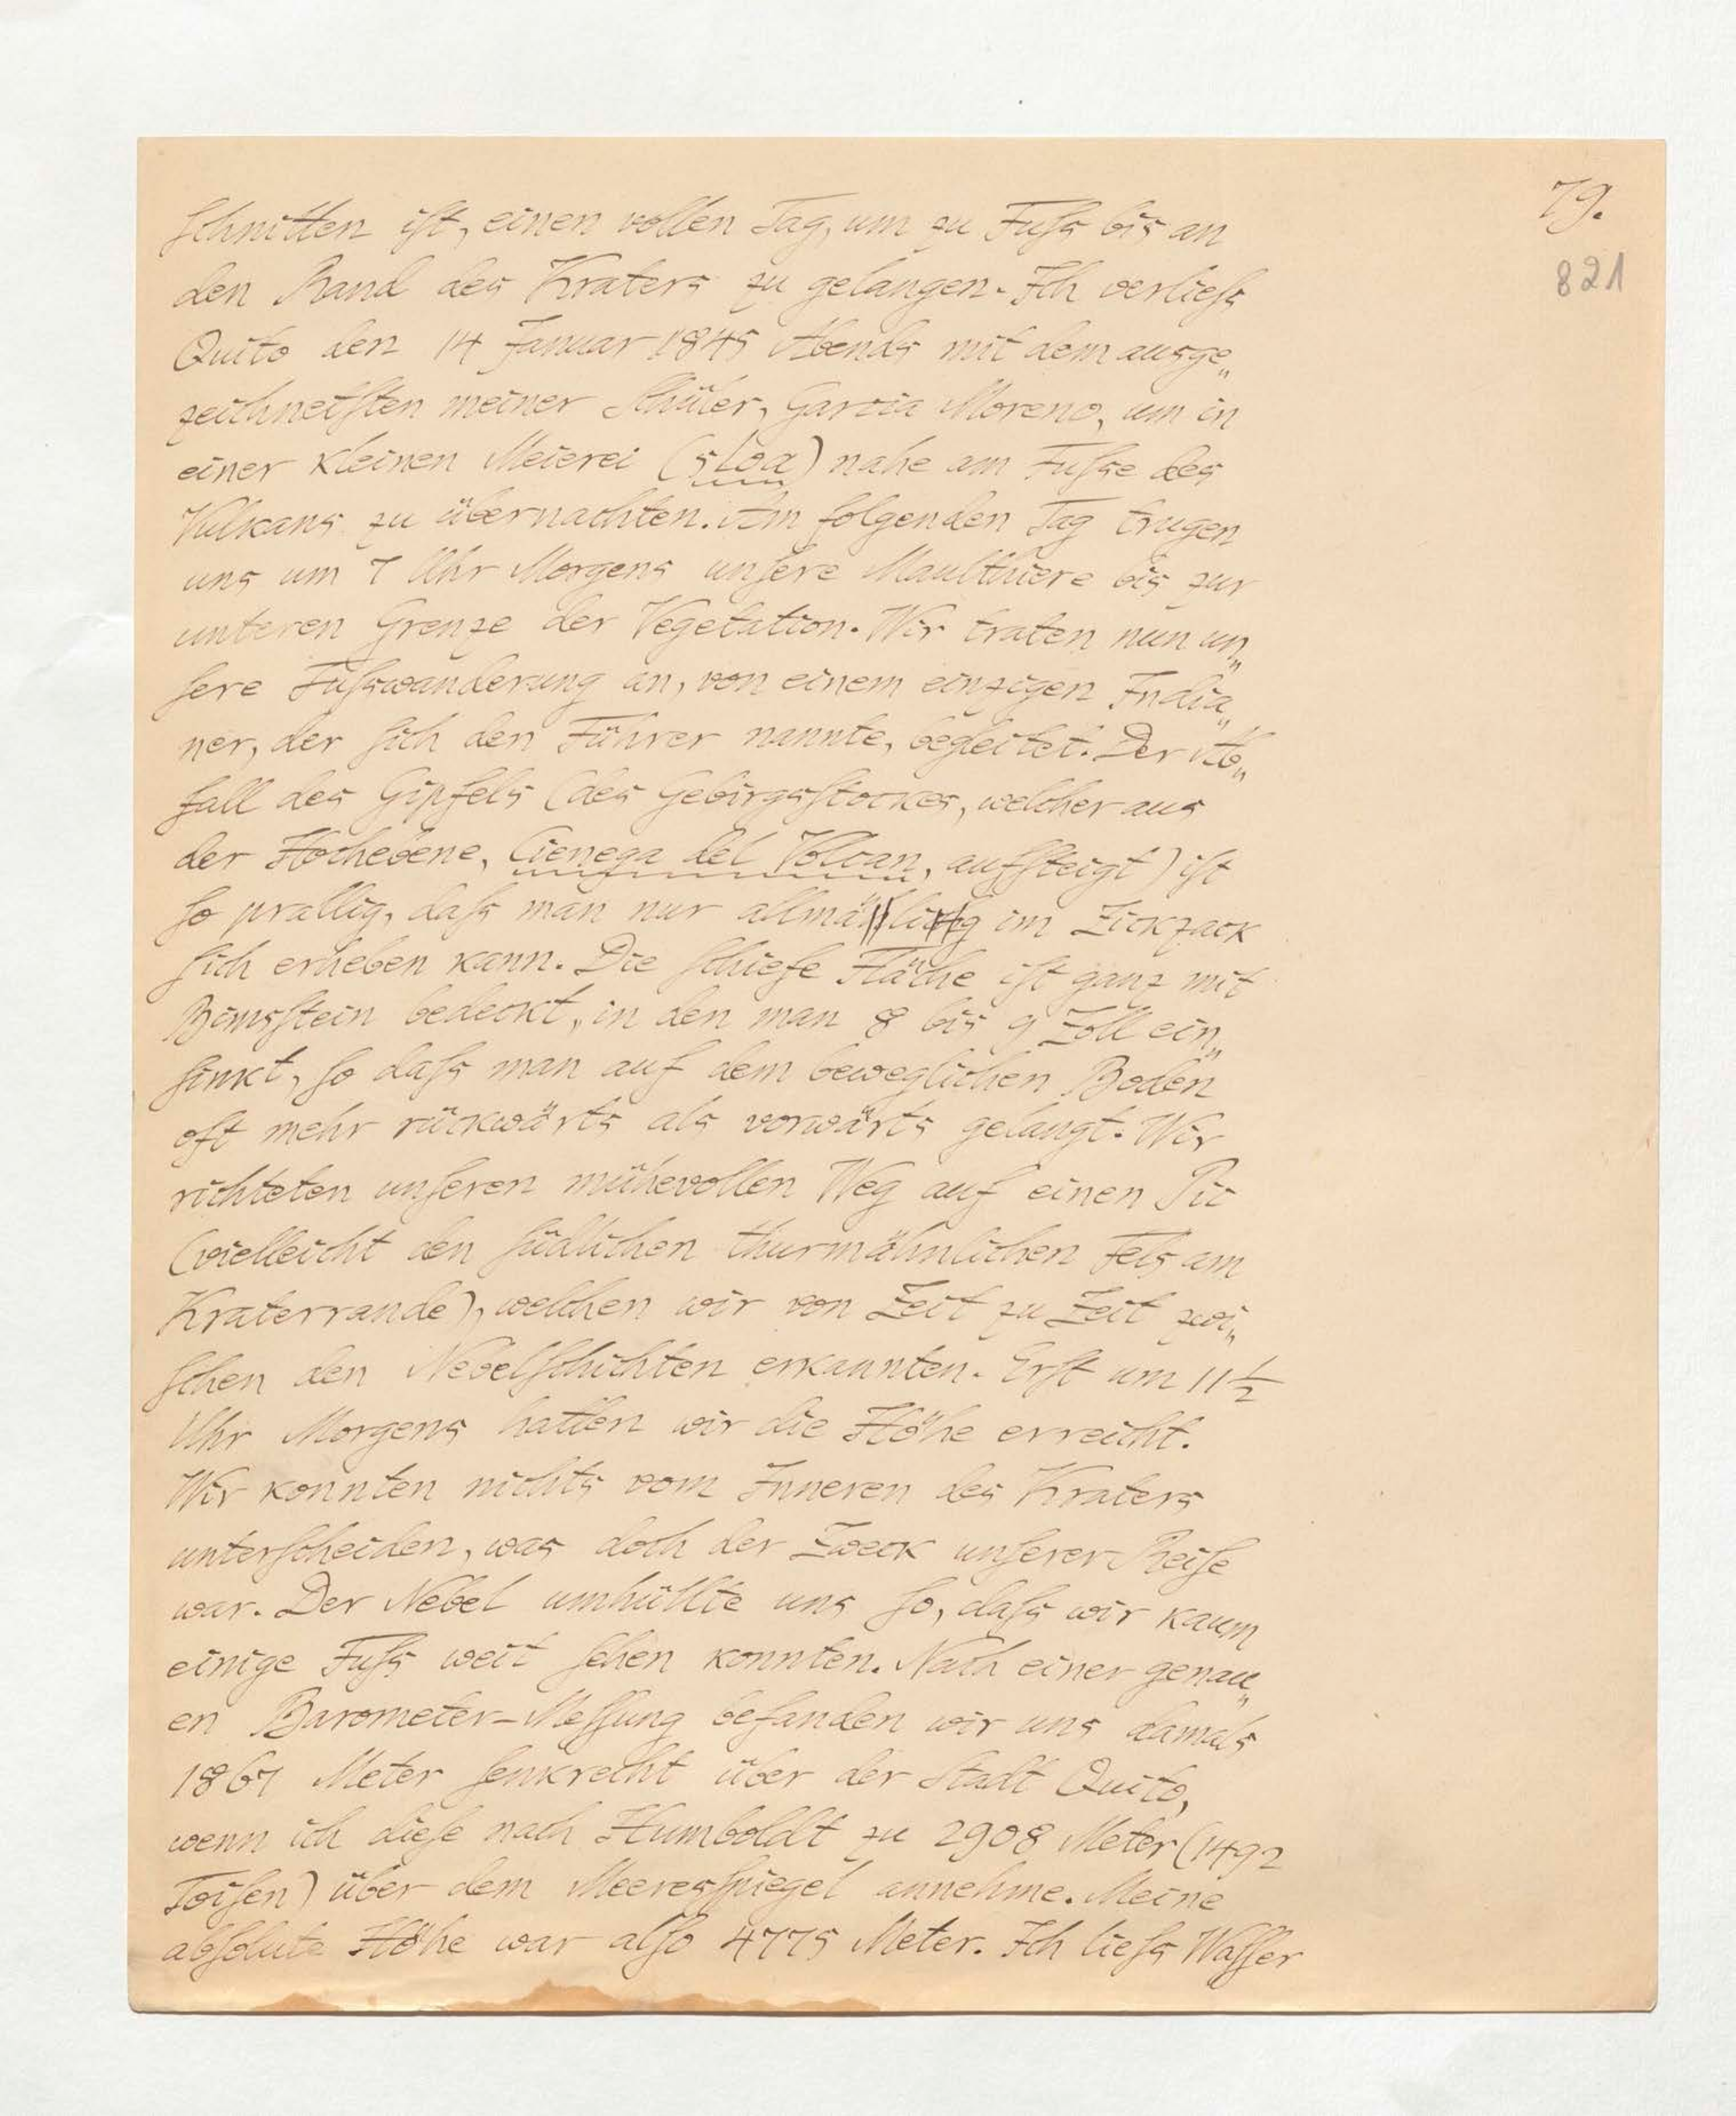 79.
821
schnitten ist, einen vollen Tag, um zu Fuſs bis an
den Rand des Kraters zu gelangen. Ich verlieſs
Quito den 14 Januar 1845 Abends mit dem ausge„
zeichneisten meiner Schüler, Garcia Moreno, um in
einer kleinen Meierei (sLoa) nahe am Fuſse des
Vulkans zu übernachten. Am folgenden Tag trugen
uns um 7 Uhr Morgens unſere Maulthiere bis zur
unteren Grenze der Vegetation. Wir traten nun un„
ſere Fuſswanderung an, von einem einzigen India„
ner, der ſich den Führer nannte, begleitet. Der Ab„
fall des Gipfels (des Gebirgsſtockes, welcher aus
der Hochebene, Cienega del Volcan, aufſteigt) iſt
ſo prallig, daſs man nur allmälig im Zickzack
ſich erheben kann. Die ſchiefe Fläche iſt ganz mit
Bimsſtein bedeckt, in den man 8 bis 9 Zoll ein„
ſinkt, ſo daſs man auf dem beweglichen Boden
oft mehr rückwärts als vorwärts gelangt. Wir
richteten unſeren mühevollen Weg auf einen Pic
(vielleicht den ſüdlichen thurmähnlichen Fels am
Kraterrande), welchen wir von Zeit zu Zeit zwi„
ſchen den Nebelſchichten erkannten. Erſt um 11 1/2
Uhr Morgens hatten wir die Höhe erreicht.
Wir konnten nichts vom Inneren des Kraters
unterſcheiden, was doch der Zweck unſerer Reiſe
war. Der Nebel umhüllte uns ſo, daſs wir kaum
einige Fuſs weit ſehen konnten. Nach einer genau„
en Barometer-Meſſung befanden wir uns damals
1867 Meter ſenkrecht über der Stadt Quito,
wenn ich dieſe nach Humboldt zu 2908 Meter (1492
Toiſen) über dem Meeresſpiegel annehme. Meine
abſolute Höhe war alſo 4775 Meter. Ich lieſs Waſſer